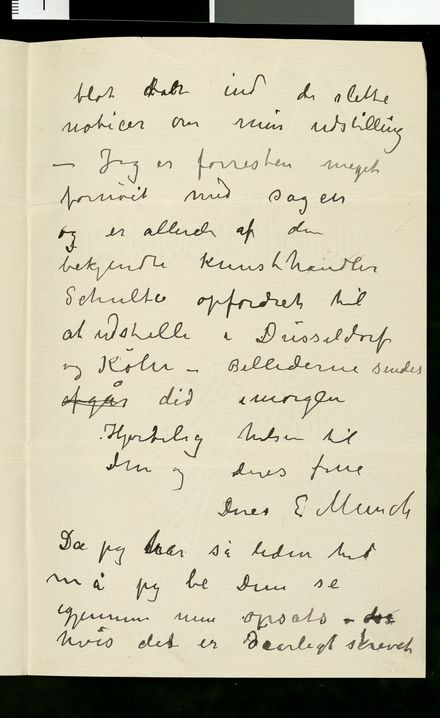 blot ind de slette
notiser om min udstilling
– Jeg er forresten meget
fornöiet med sagen
og er allerede af den
bekjendte Kunsthandler
Schulte opfordret til
at udstille i Düsseldorf
og Köln – Billederne sendes
afgår did imorgen
Hjertelig hilsen til
Dem og deres frue
Deres E Munch
Da jeg har så liden tid
må jeg be Dem se
igjennem min opsats –
hvis det er daarligt skrevet